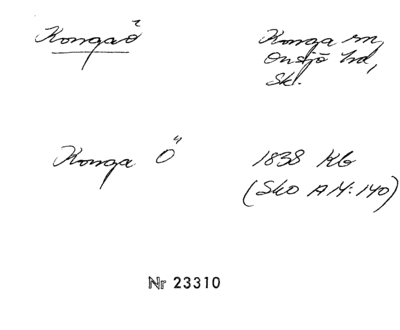 Kongaö Konga sn,
Onsjö hd,
Sk.
Konga Ö 1838 Kb
(Sko AM:140)
Nr 23310